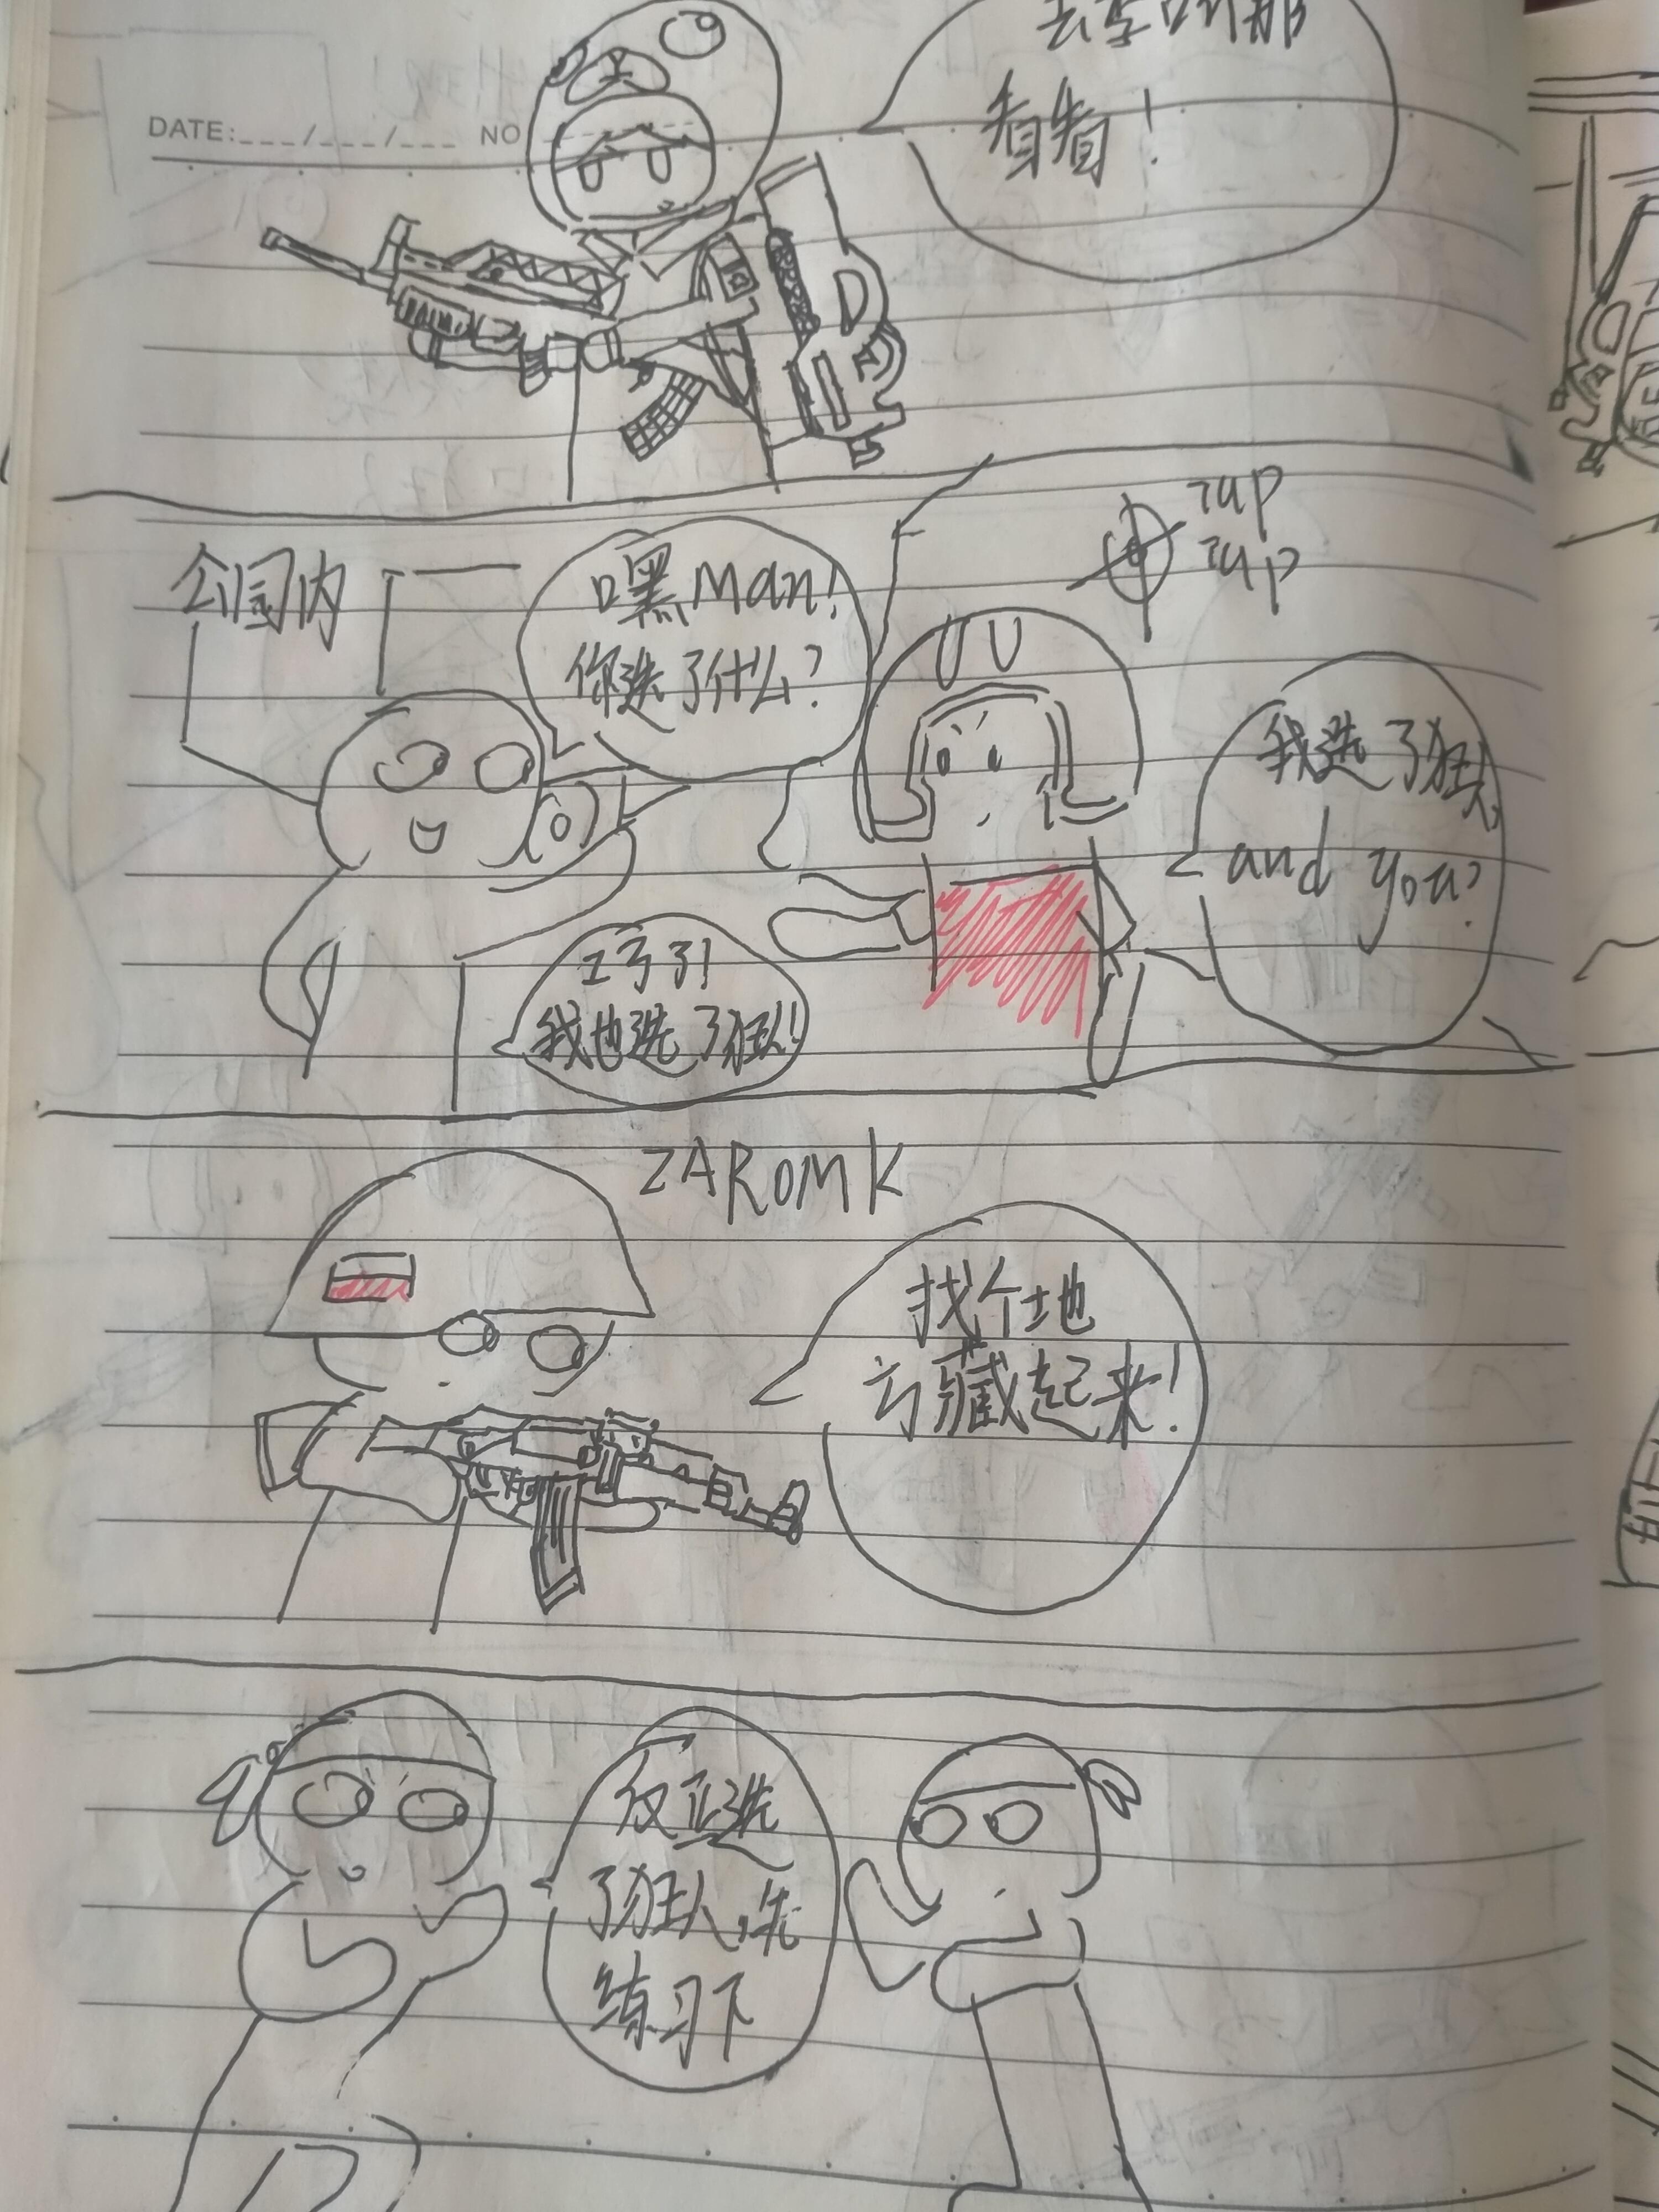 去掌叫那
看看！
DATE:___/___/___ NO
公园内
嘿Man！
你选了什么？
我选了狂人,
and you?
巧了！
我也选了狂人！
ZAROMK
找个地
方藏起来！
反正选
了狂人，先
练习下